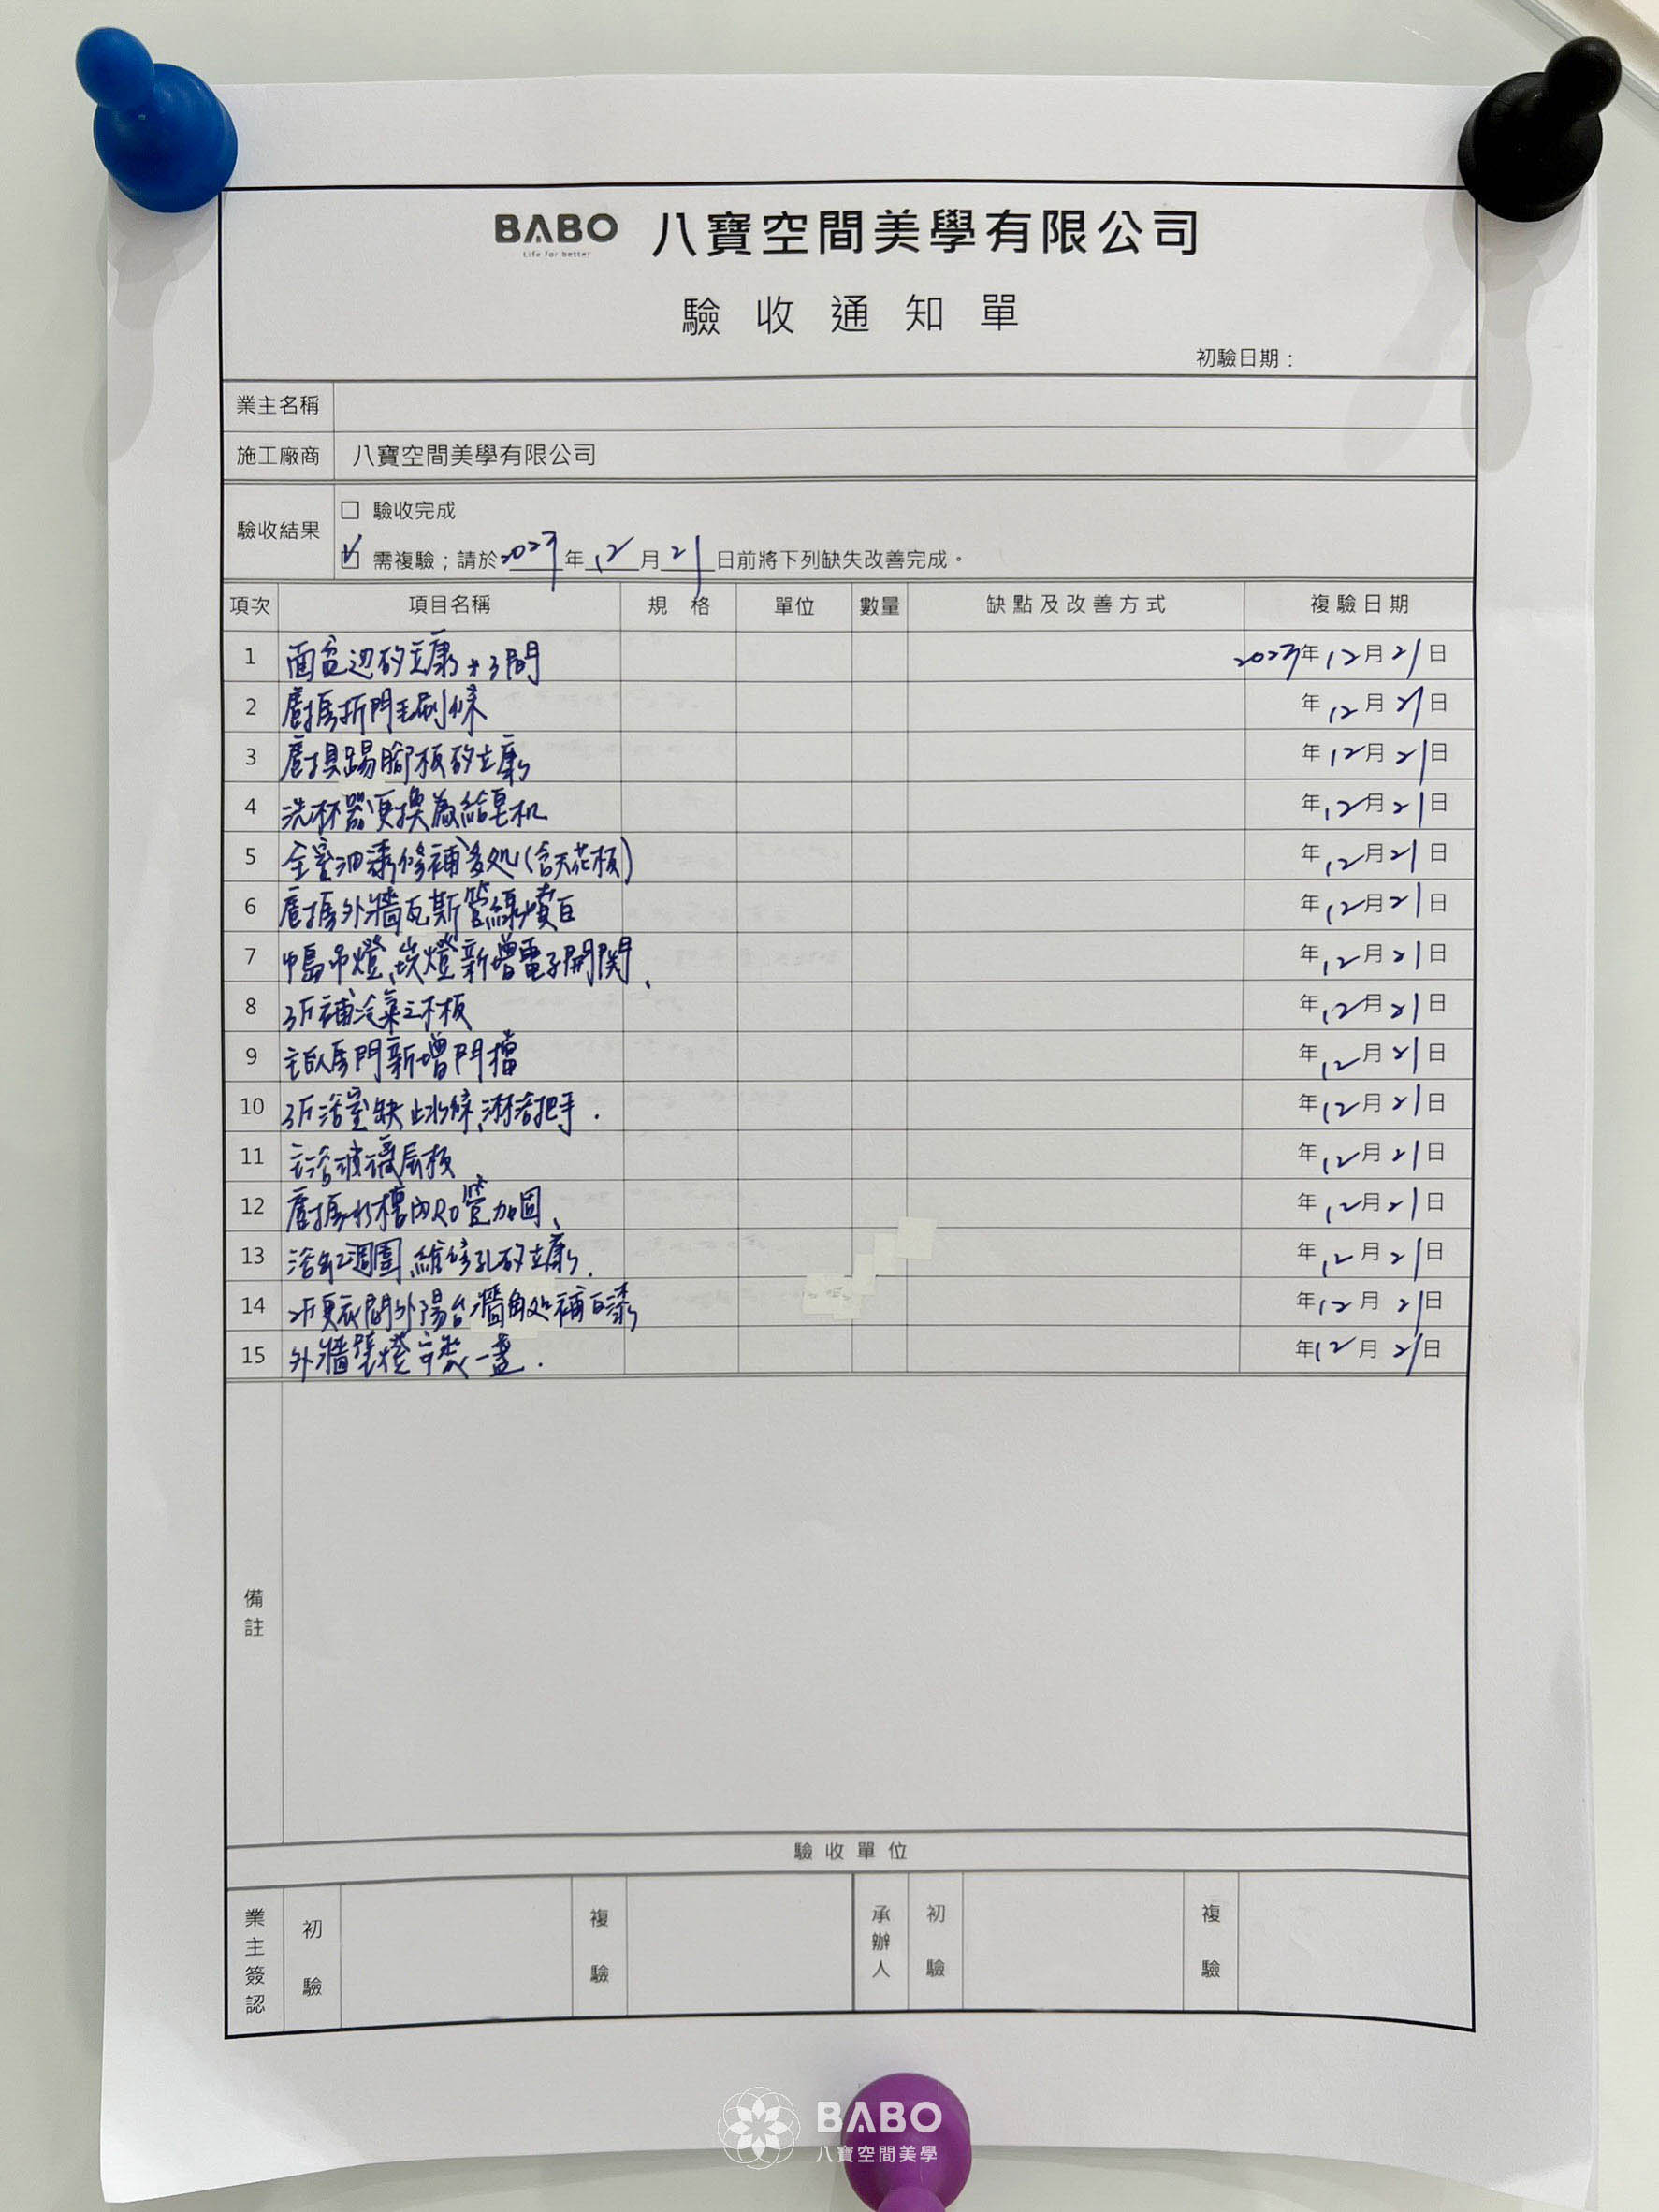 BABO 八寶空間美學有限公司
Life for better
驗收通知單
初驗日期：
業主名稱
施工廠商 八寶空間美學有限公司
驗收結果
☐ 驗收完成
☑ 需複驗；請於2023年12月21日前將下列缺失改善完成。
項次 項目名稱 規格 單位 數量 缺點及改善方式 複驗日期
1 面盆边矽立康*3間 2023年12月21日
2 廚房折門毛刷條 年12月21日
3 廚具踢腳板矽立康 年12月21日
4 洗杯器更換為給皂机 年12月21日
5 全室油漆修補多処(含天花板) 年12月21日
6 廚房外牆瓦斯管線噴白 年12月21日
7 中島吊燈、崁燈新增電子開関、 年12月21日
8 3F補冷氣之木板 年12月21日
9 主臥房門新增門擋 年12月21日
10 3F浴室缺止水條、淋浴把手. 年12月21日
11 主浴玻璃层板 年12月21日
12 廚房水槽內RO管加固、 年12月21日
13 浴缸週圍、維修孔矽立康、 年12月21日
14 2F更衣間外陽台牆角処補白漆 年12月21日
15 外牆壁燈安裝一盞. 年12月21日
備註
驗收單位
業主簽認 初驗 複驗 承辦人 初驗 複驗
BABO
八寶空間美學